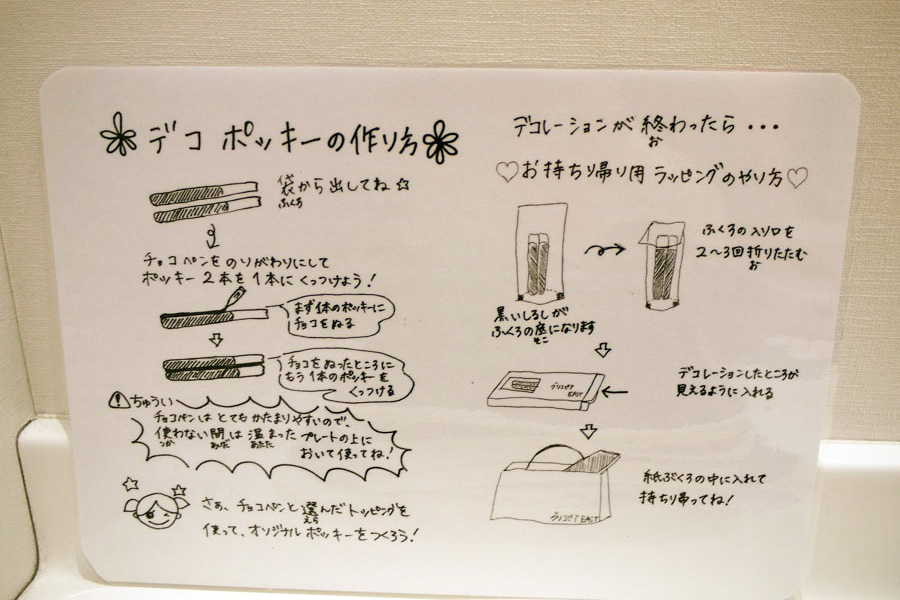 デコ ポッキーの作り方
袋から出してね☆
ふくろ
チョコペンをのりがわりにして
ポッキー2本を1本にくっつけよう！
まず1本のポッキーに
チョコをぬる
チョコをぬったところに
もう1本のポッキーを
くっつける
ちゅうい
チョコペンはとてもかたまりやすいので、
使わない間は温まったプレートの上に
つか あいだ あたた
おいて使ってね！
さぁ、チョコペンと選んだトッピングを
えら
使って、オリジナルポッキーをつくろう！
デコレーションが終わったら・・・
お
♡お持ち帰り用ラッピングのやり方♡
ふくろの入り口を
2〜3回折りたたむ
お
黒いしるしが
ふくろの底になります
そこ
デコレーションしたところが
見えるように入れる
グリコピア
EAST
紙ぶくろの中に入れて
持ち帰ってね！
グリコピア EAST